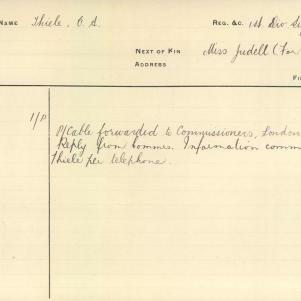 NAME Thiele, O. A. REG. &C. 1st Div. Sig
NEXT OF KIN Miss Judell (For
ADDRESS
FI
1/P P/Cable forwarded to Commissioners, London
Reply from Sommes. Information comm
Thiele per telephone.